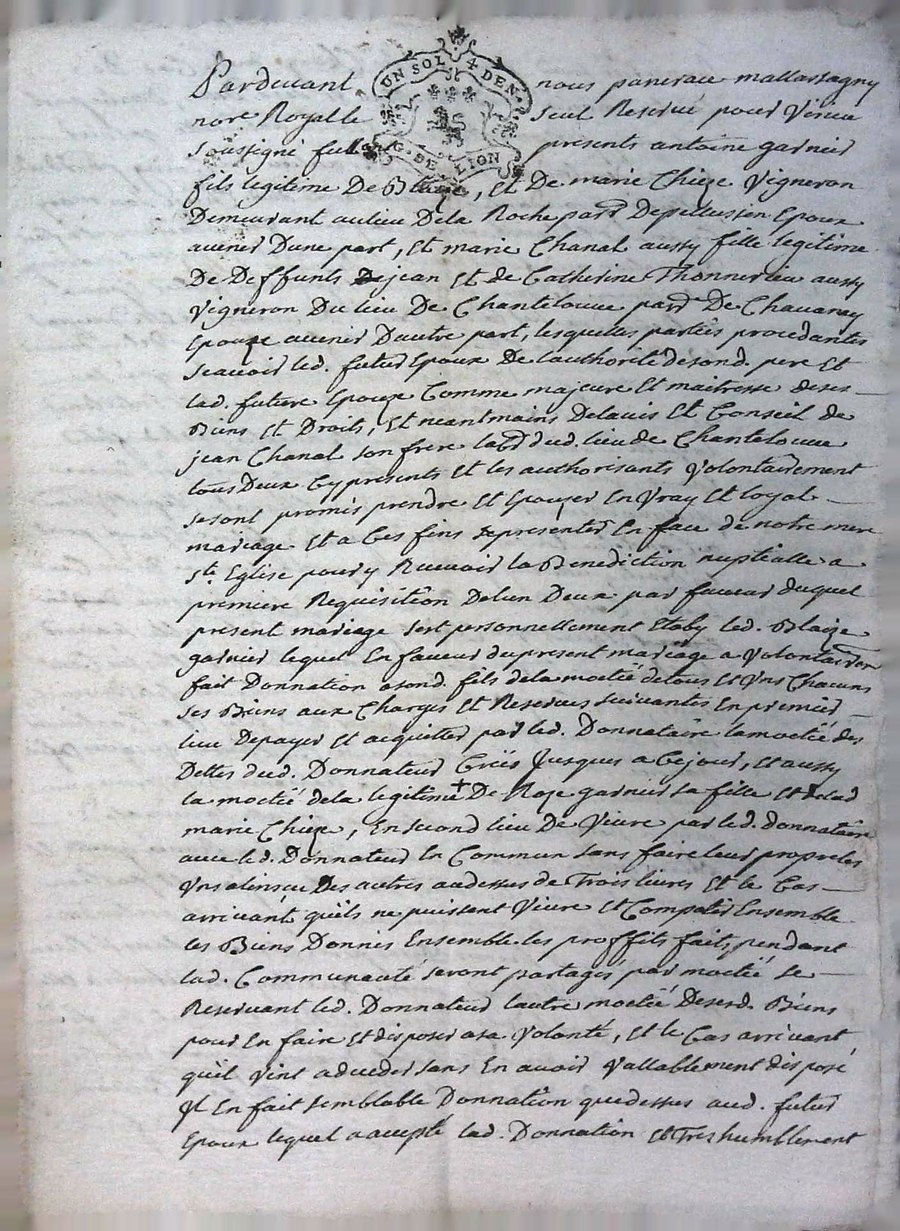 UN SOL 4 DEN.
G. DE LION
Pardevant nous panerace mallassagny
nore Royalle seul Reservé pour Virieu
soussigné furent presents antoine garnier
fils legitime De Blaize, Et De marie Chieze Vigneron
Demeurant au lieu Dela Roche parr. De pellussien Epoux
avenir Dune part, Et marie Chanal aussy fille legitime
De Deffunts De jean Et de Catherine Thonnerieu aussy
Vigneron Du lieu De Chantelouve parr. De Chavanay
Epouze avenir Dautre part, lesquelles parties procedantes
scavoir led. futur Epoux De lauthorité de sond. pere Et
lad. future Epouze Comme majeure Et maitresse de ses
Biens Et Droits, Et neantmains Delavis Et Conseil de
jean Chanal son frere dud. lieu de Chantelouve
tous Deux Cy presents Et les authorisants Volontairement
se sont promis prendre Et Epouser En Vray Et loyal
mariage Et a Ces fins se presenter En face de notre mere
ste Eglise pour y Recevoir la Benediction nuptialle a
premiere Requisition Delun Deux par faveur duquel
present mariage sest personnellement Etably led. Blaize
garnier lequel En faveur du present mariage a Volontairem
fait Donnation a sond. fils de la moctié de tous Et Uns Chacuns
ses Biens aux Charges Et Reserves suivantes En premier
lieu De payer Et acquitter par led. Donnataire la moctié des
Dettes dud. Donnateur Créés Jusques a Cejour, Et aussy
la moctié de la legitime + De Roze garnier sa fille Et de lad
marie Chieze, En second lieu De Vivre par led. donnataire
avec led. Donnateur En Commun sans faire leur propre les
Uns alinsceu Des autres audessus de Trois livres Et le Cas
arrivant quils ne puissent Vivre Et Compatir Ensemble
les Biens Donnés Ensemble les proffits faits pendant
lad. Communauté seront partagés par moctié se
Reservant led. Donnateur lautre moctié Desesd. Biens
pour En faire Et disposer a sa Volonté, Et le Cas arrivant
quil Vint a deceder sans En avoir Vallablement disposé
Yl En fait semblable Donnation que dessus aud. futur
Epoux lequel a accepté lad. Donnation Et Tres humblement